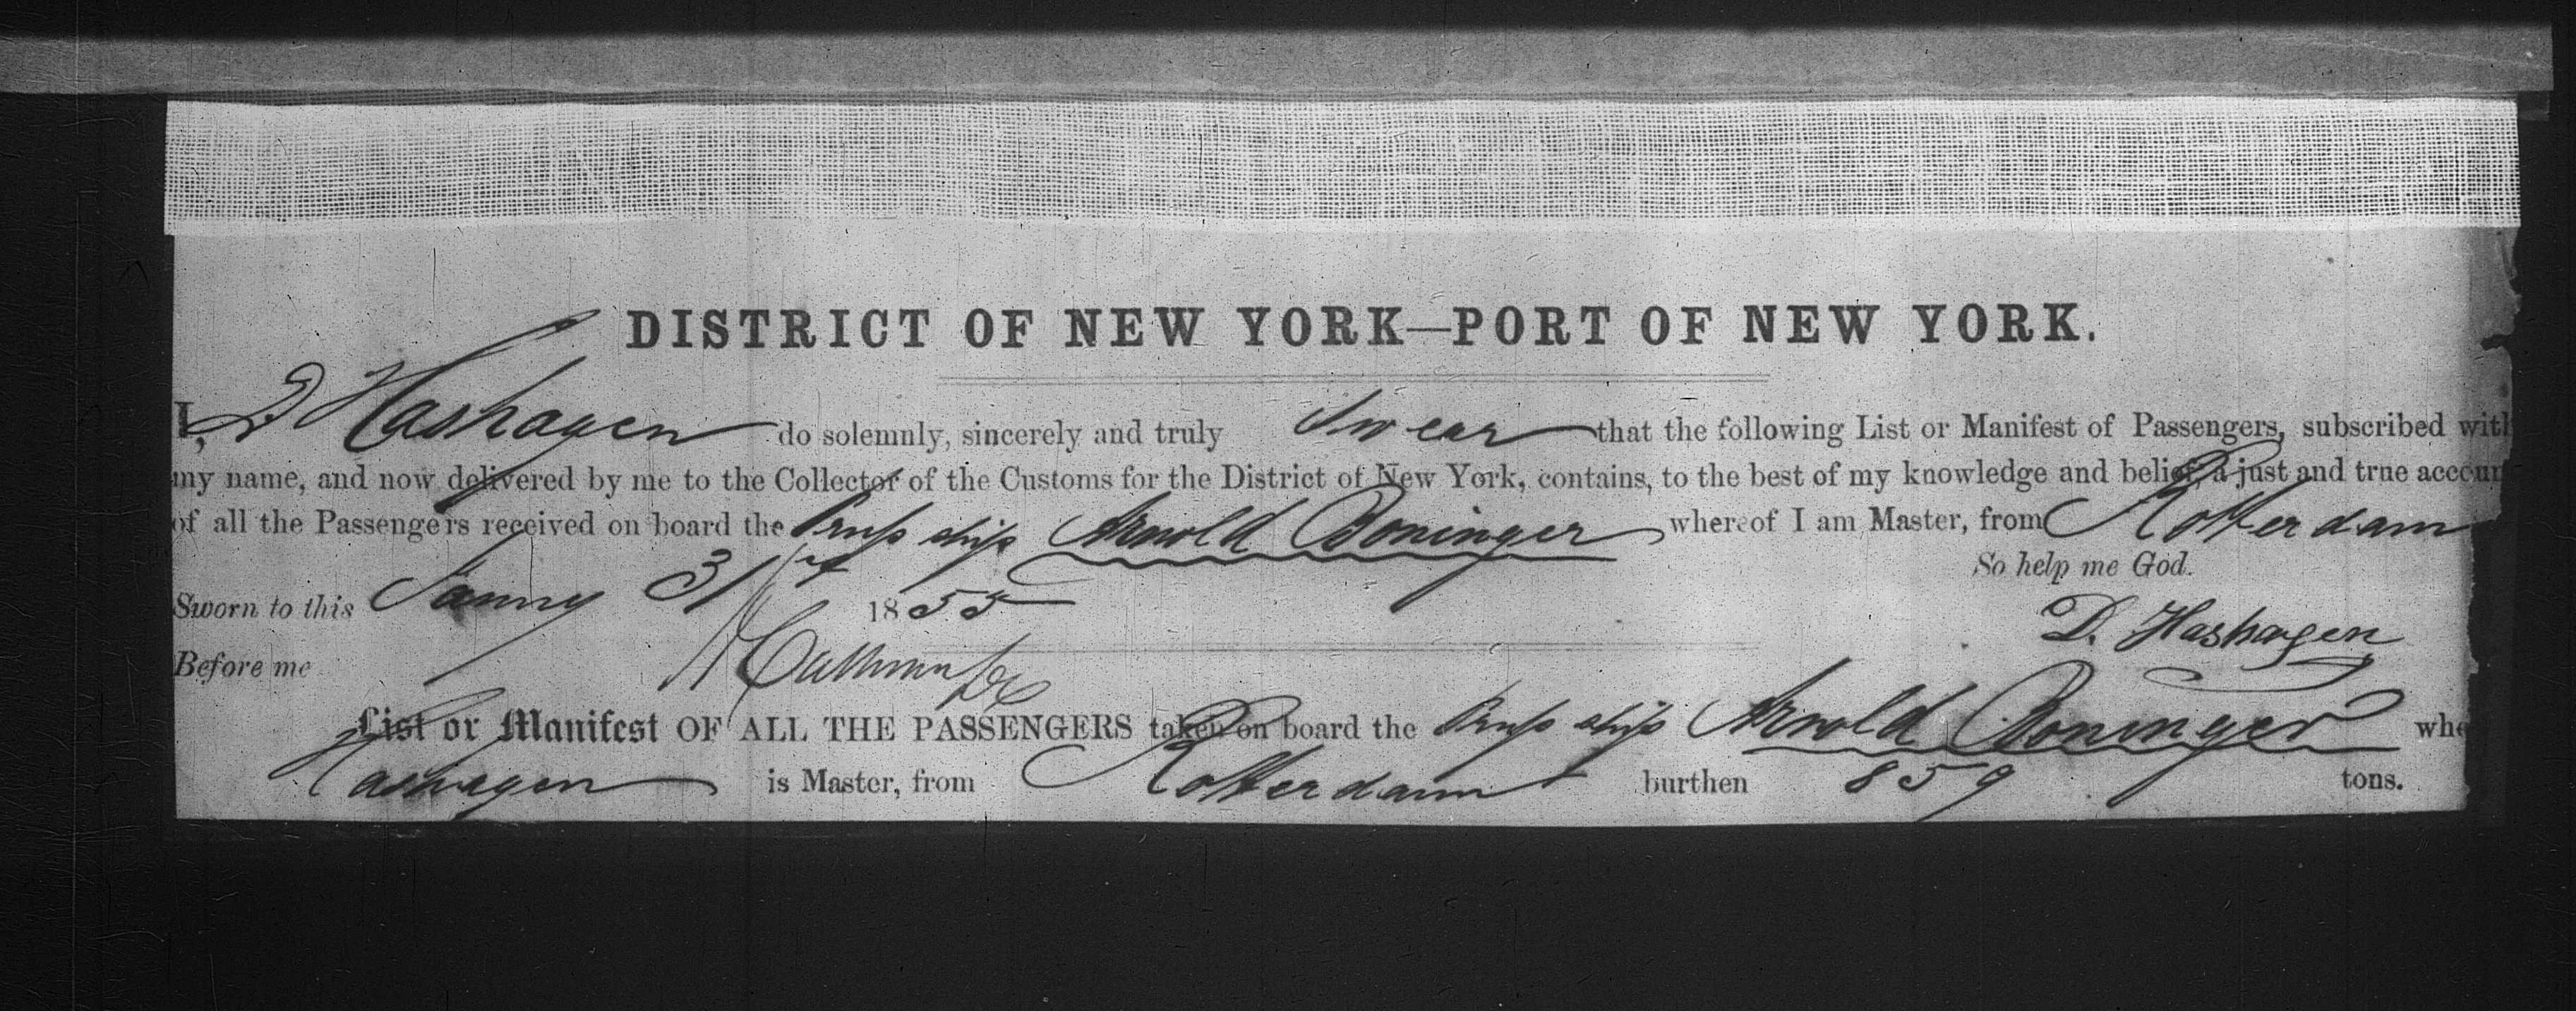 DISTRICT OF NEW YORK—PORT OF NEW YORK.
I, D Hashagen do solemnly, sincerely and truly Swear that the following List or Manifest of Passengers, subscribed with
my name, and now delivered by me to the Collector of the Customs for the District of New York, contains, to the best of my knowledge and belief, a just and true accoun
of all the Passengers received on board the Pruss ship Arnold Boninger whereof I am Master, from Rotterdam
So help me God.
Sworn to this Janny 31st 1855
D. Hashagen
Before me
List or Manifest OF ALL THE PASSENGERS taken on board the Pruss ship Arnold Boninger whe
Hashagen is Master, from Rotterdam burthen 859 tons.